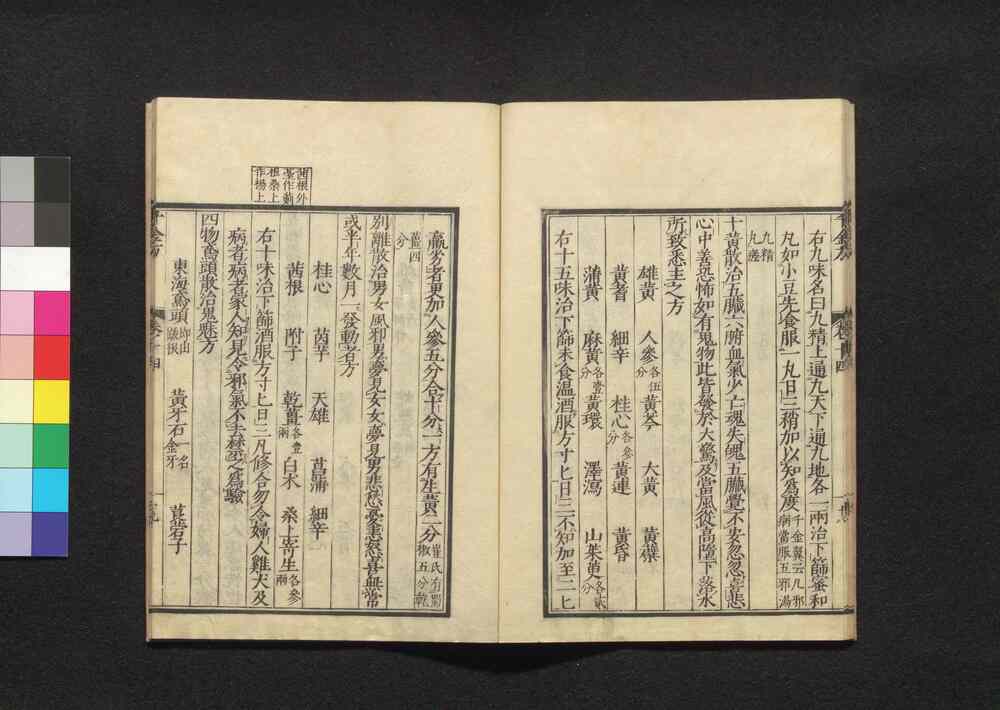 右九味名曰九精上通九天下通九地各一兩治下篩蜜和
丸如小豆先食服一丸日三稍加以知爲度千金翼云凡邪病當服五邪湯
九精丸差
十黄散治五臟六腑血氣少亡魂失魄五臟覺不安忽忽喜悲
心中善恐怖如有鬼物此皆發於大驚及當風從高墮下落水
所致悉主之方
雄黄 人參各伍分 黄芩 大黄 黄蘗
黄耆 細辛 桂心各參分 黄連 黄昏
蒲黄 麻黄各壹分 黄環 澤瀉 山茱萸各貳分
右十五味治下篩未食温酒服方寸匕日三不知加至二匕
羸劣者更加人參五分合十分一方有生黄二分崔氏有蜀椒五分乾
薑四分
別離散治男女風邪男夢見女女夢見男悲愁憂恚怒喜無常
或半年數月一發動者方
桂心 茵芋 天雄 菖蒲 細辛
茜根 附子 乾薑各壹兩 白朮 桑上寄生各參兩
右十味治下篩酒服方寸匕日三凡修合勿令婦人雞犬及
病者病者家人知見令邪氣不去禁之爲驗
四物鳶頭散治鬼魅方
東海鳶頭 黄牙石一名金牙 莨菪子
茜根外
臺作薊
根桑上
作楊上
千金方
卷十四